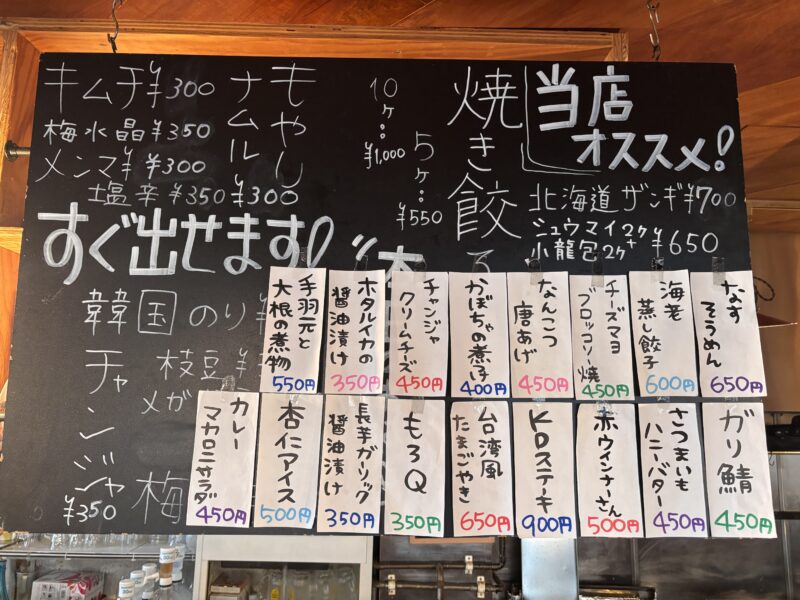 当店
オススメ!
北海道ザンギ¥700
シュウマイ2ヶ+
小龍包2ヶ
¥650
焼き餃子
5ヶ…
¥550
10ヶ…
¥1,000
もやし
ナムル
¥300
キムチ¥300
梅水晶¥350
メンマ¥300
塩辛¥350
すぐ出せます!
韓国のり¥
チャンジャ
¥350
枝豆¥
メガ
梅
なす
そうめん
650円
海老
蒸し餃子
600円
チーズマヨ
ブロッコリー焼
450円
なんこつ
唐あげ
450円
かぼちゃの煮付
400円
チャンジャ
クリームチーズ
450円
ホタルイカの
醤油漬け
350円
手羽元と
大根の煮物
550円
ガリ鯖
450円
さつまいも
ハニーバター
450円
赤ウィンナーさん
500円
KDステーキ
900円
台湾風
たまごやき
650円
もろQ
350円
長芋ガーリック
醤油漬け
350円
杏仁アイス
500円
カレー
マカロニサラダ
450円